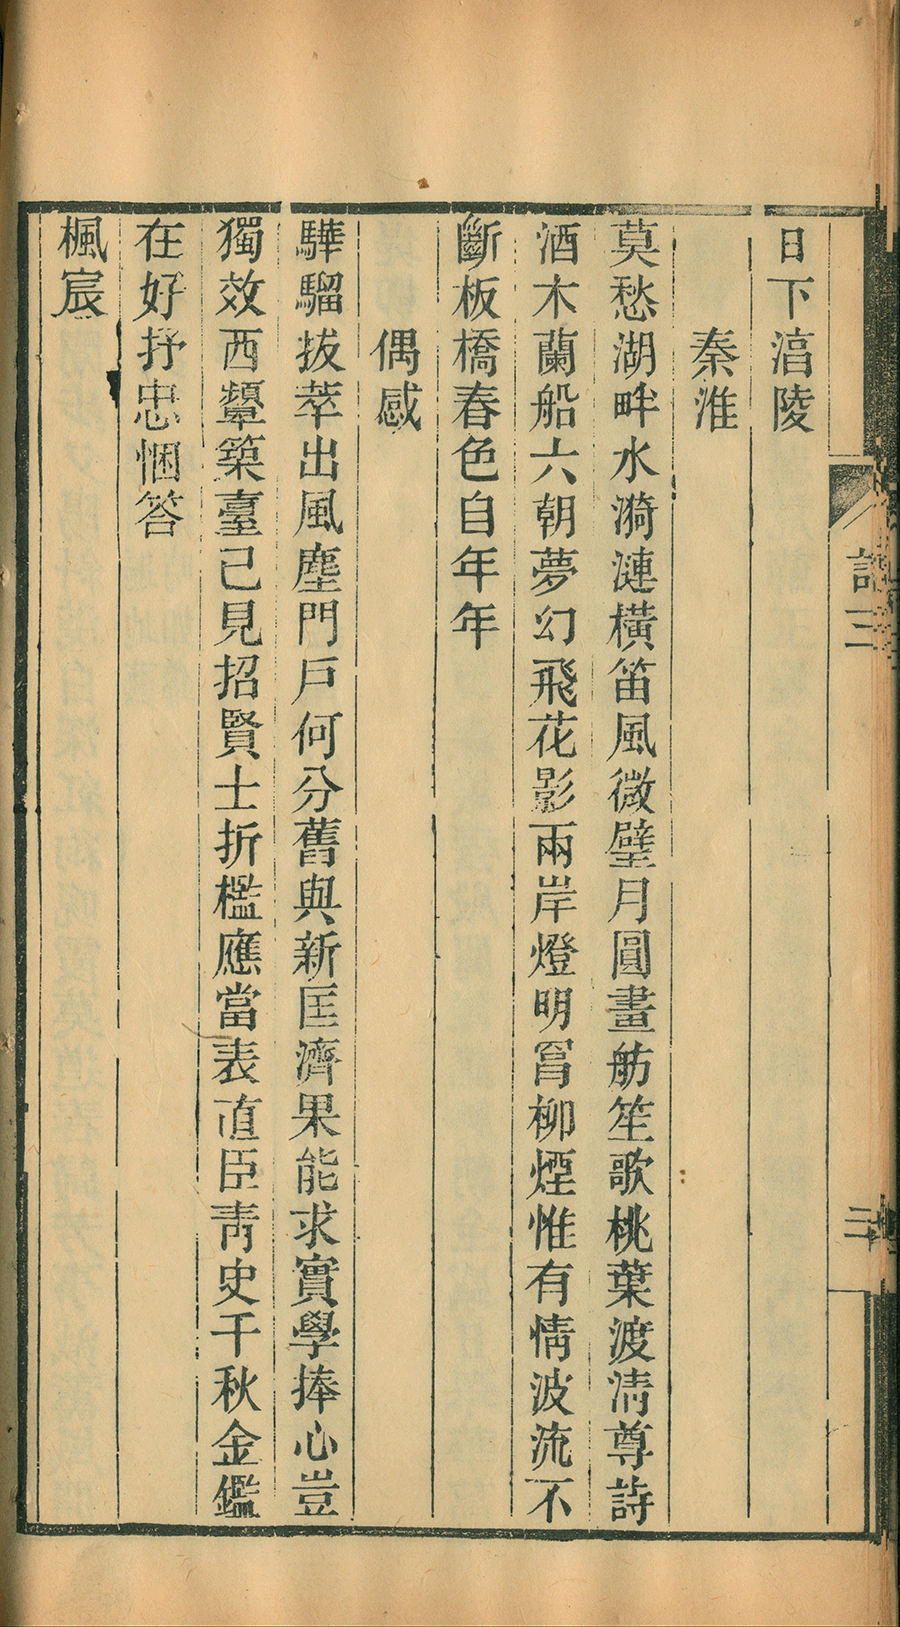 日下涪陵
秦淮
莫愁湖畔水漪漣橫笛風微璧月圓畫舫笙歌桃葉渡清尊詩
酒木蘭船六朝夢幻飛花影兩岸燈明罥柳煙惟有情波流不
斷板橋春色自年年
偶感
驊騮拔萃出風塵門戶何分舊與新匡濟果能求實學捧心豈
獨效西顰築臺已見招賢士折檻應當表直臣靑史千秋金鑑
在好抒忠悃答
楓宸